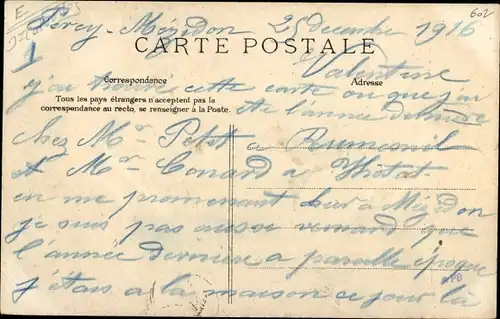 Percy-Mézidon 25 decembre 1916
602
CARTE POSTALE
Correspondence
Adresse
Tous les pays étrangers n'acceptent pas la
correspondance au recto, se renseigner à la Poste.
Valentine
j'ai trouvé cette carte ou que j'ai
été l'année dernière
chez Mr Petit a Rumesnil
A Mr Conard a
en me promenant hier a Mézidon
je suis pas aussi veinard que
l'année dernière a pareille époque
j'étais a la maison ce jour là